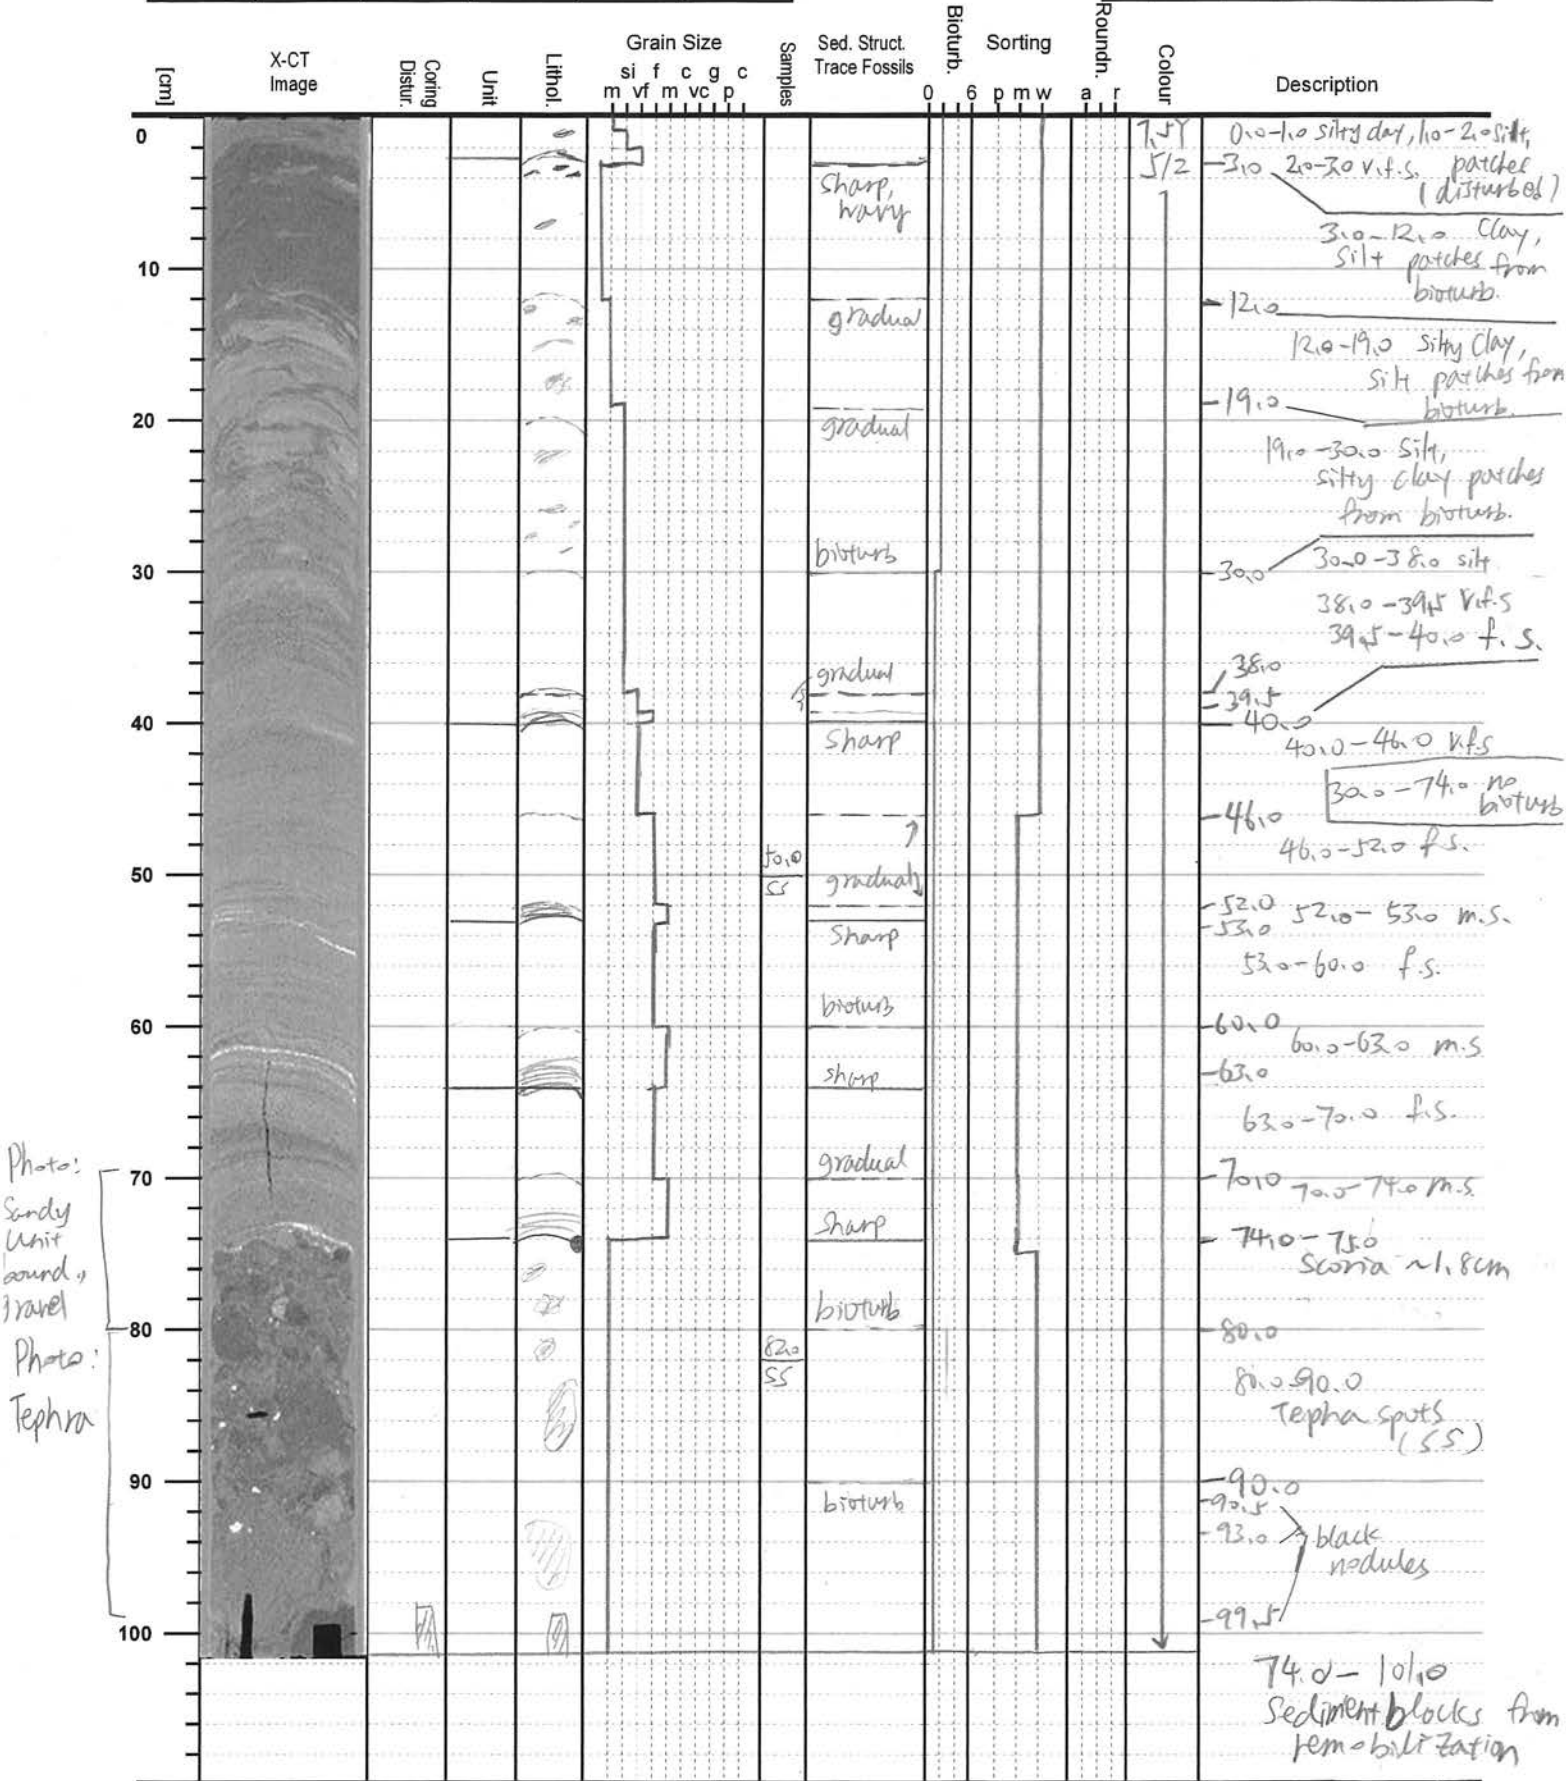 [cm]
X-CT
Image
Coring
Distur.
Unit
Lithol.
Grain Size
si f c g c
m vf m vc p
Samples
Sed. Struct.
Trace Fossils
Bioturb.
0 6
Sorting
p m w
Roundn.
a r
Colour
Description
0
10
20
30
40
50
60
70
80
90
100
Photo:
Sandy
Unit
bound.,
Photo:
Tephra
50.0
SS
82.0
SS
sharp,
wavy
gradual
gradual
bioturb
gradual
sharp
gradual
sharp
bioturb
sharp
gradual
sharp
bioturb
bioturb
7.5Y
5/2
0.0-1.0 silty clay, 1.0-2.0 silt,
3.0 2.0-3.0 v.f.s. patches
(disturbed)
3.0-12.0 Clay,
silt patches from
bioturb.
12.0
12.0-19.0 silty clay,
silt patches from
19.0 bioturb.
19.0-30.0 silt,
silty clay patches
from bioturb.
30.0 30.0-38.0 silt
38.0-39.5 v.f.s
39.5-40.0 f.s.
38.0
39.5
40.0
40.0-46.0 v.f.s
30.0-74.0 no
bioturb
46.0
46.0-52.0 f.s.
52.0 52.0-53.0 m.s.
53.0
53.0-60.0 f.s.
60.0
60.0-63.0 m.s
63.0
63.0-70.0 f.s.
70.0 70.0-74.0 m.s.
74.0-75.0
Scoria ~1.8cm
80.0
80.0-90.0
Tepha spots
(SS)
90.0
90.5
93.0 black
nodules
99.5
74.0-101.0
Sediment blocks from
remobilization